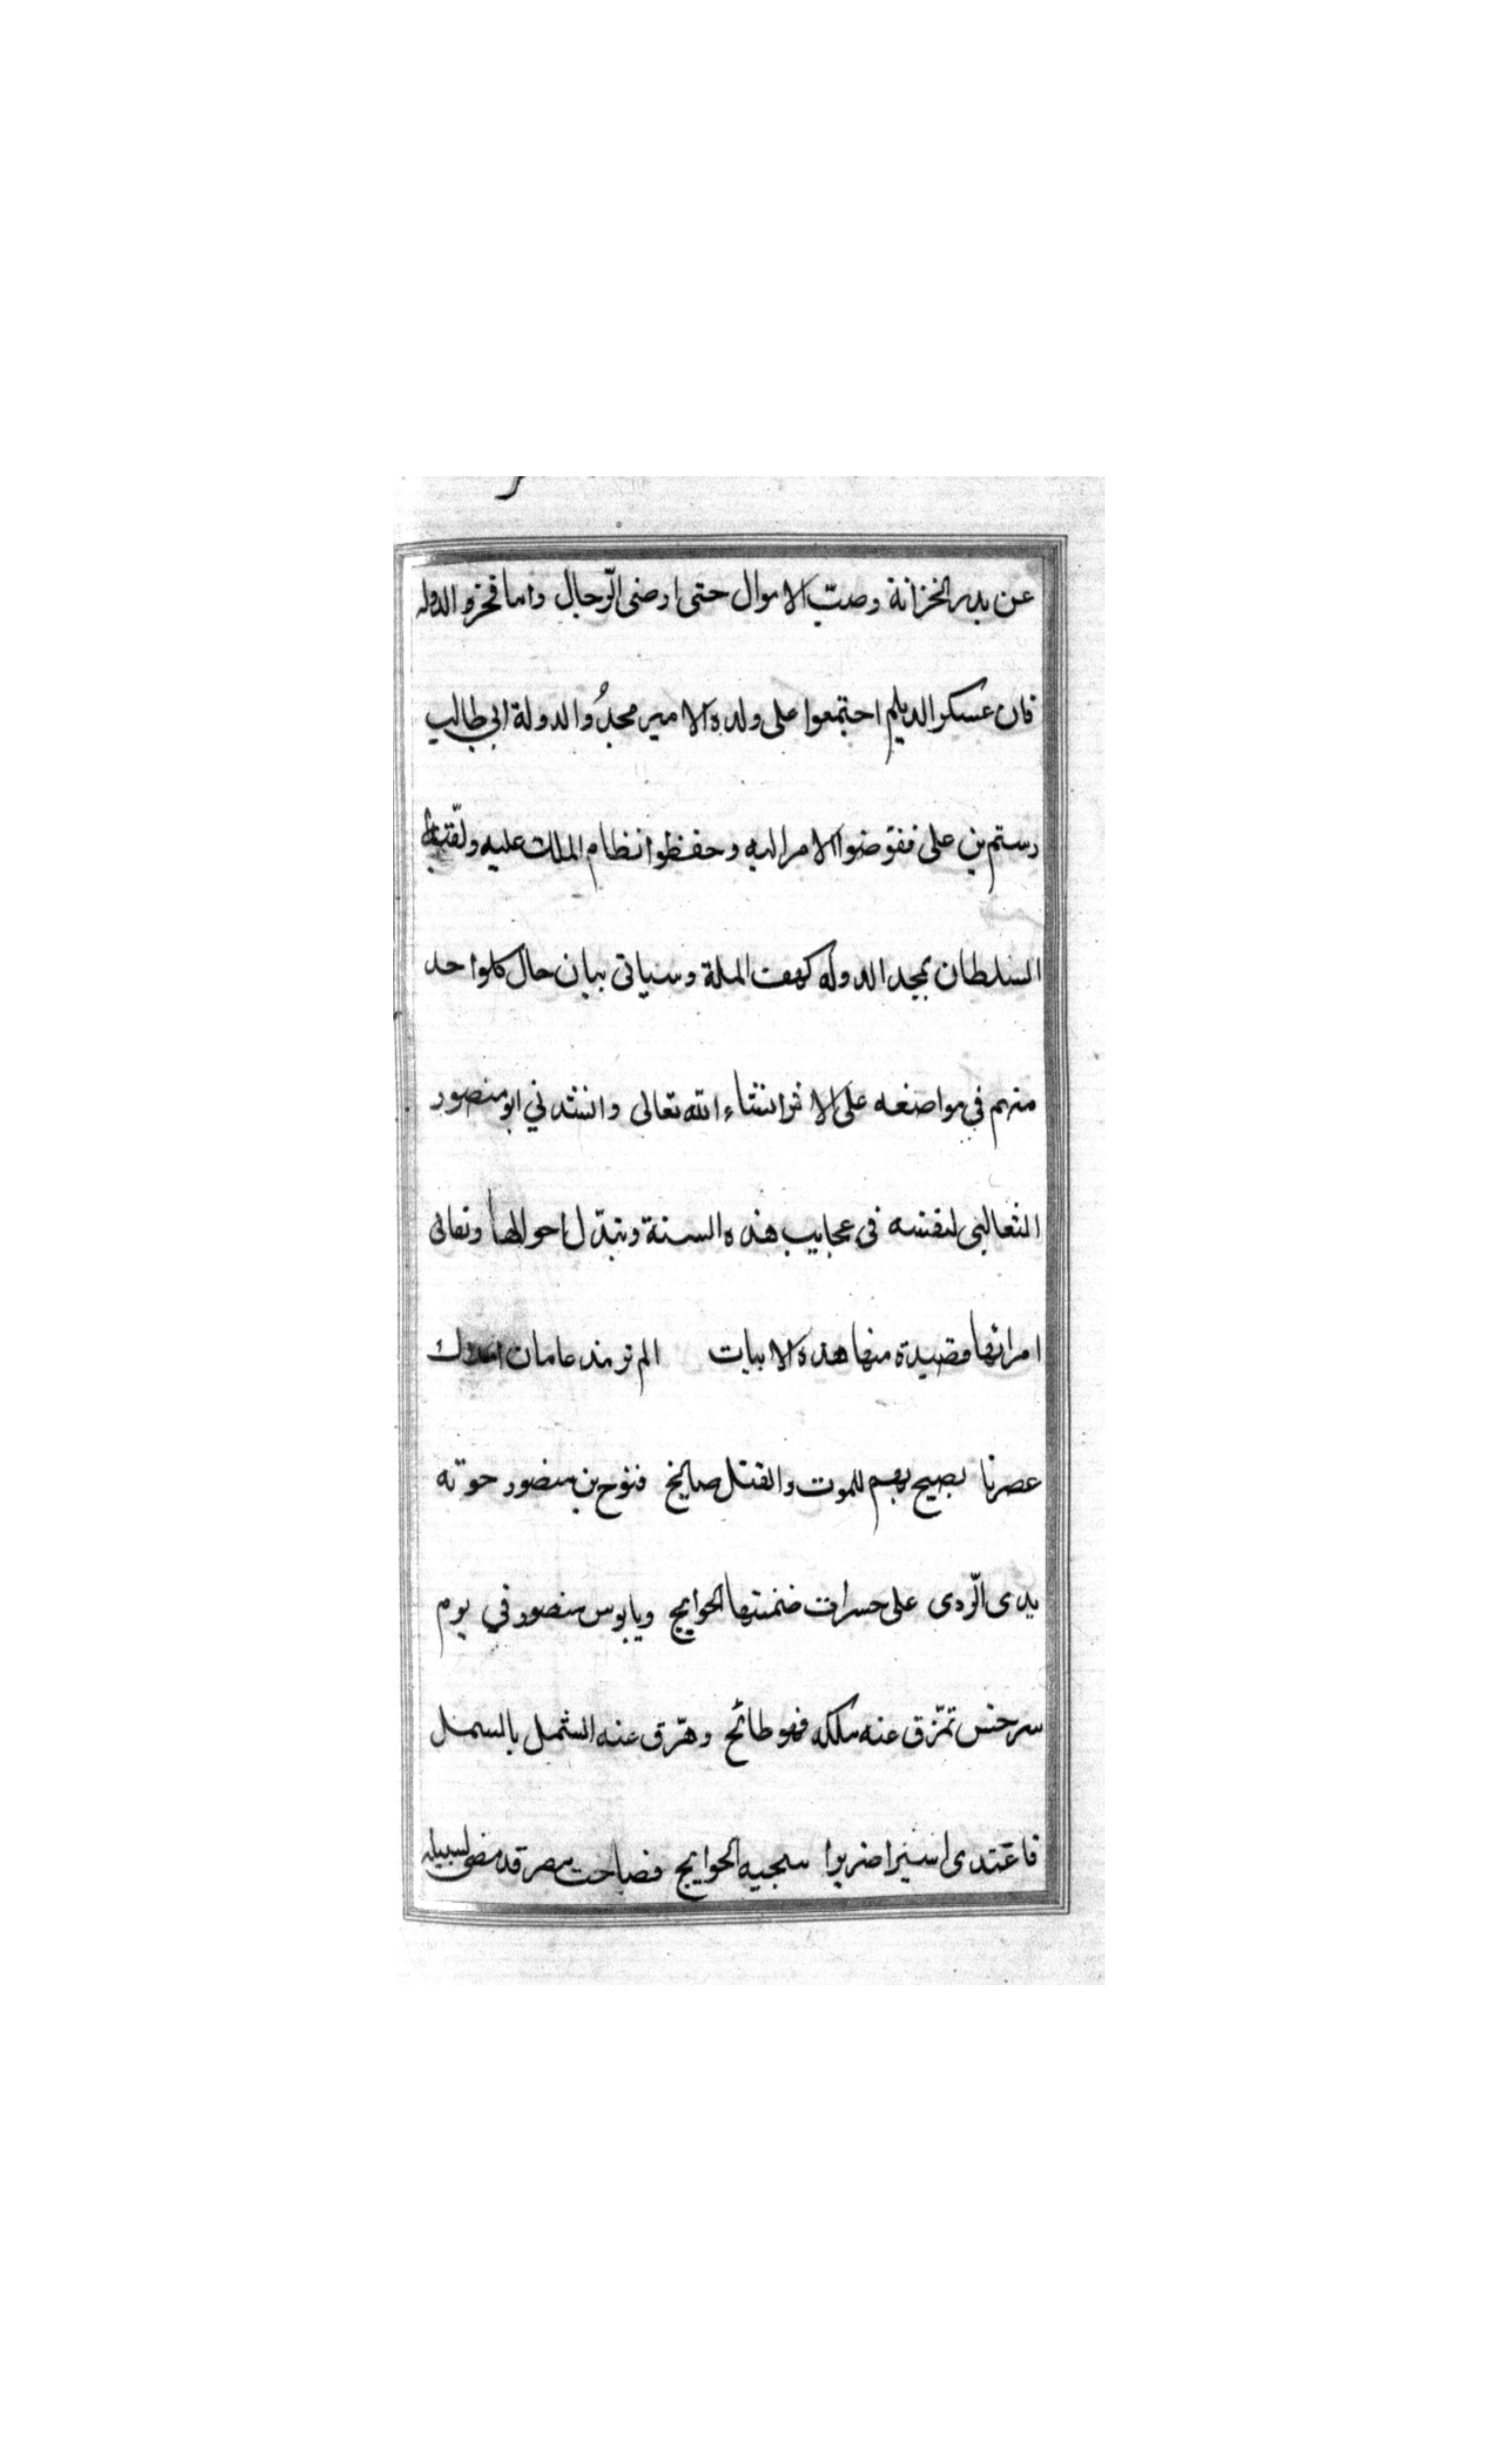 عن بدر الخزانة وصبّ الاموال حتى ارضى الرّجال واما فخر الدوله
فان عسكر الديلم اجتمعوا على ولده الامير مجدُ والدولة ابى طالب
رستم بن على ففوّضوا الامر اليه وحفظوا نظام الملك عليه ولقّبه
السلطان بمجد الدوله كهف الملة وسياتى بيان حال كلواحد
منهم فى مواضعه على الاثر انشاء الله تعالى وانشدني ابو منصور
الثعالبى لنفسه فى عجايب هذه السنة وتبدّل احوالها وتفانى
امرائها قصيدة منها هذه الابيات الم تر مذ عامان املاك
عصرنا يصيح بهم للموت والقتل صايح فنوح بن منصور حوته
يدى الرّدى على حسرات ضمنتها الجوايح ويابوس منصور في يوم
سرخس تمزّق عنه ملكه فهو طائح وفرّق عنه الشمل بالسمل
فاغتدى اسيرا ضريرا سجيه الجوايح فصاحب مصر قد مضى لسبيله